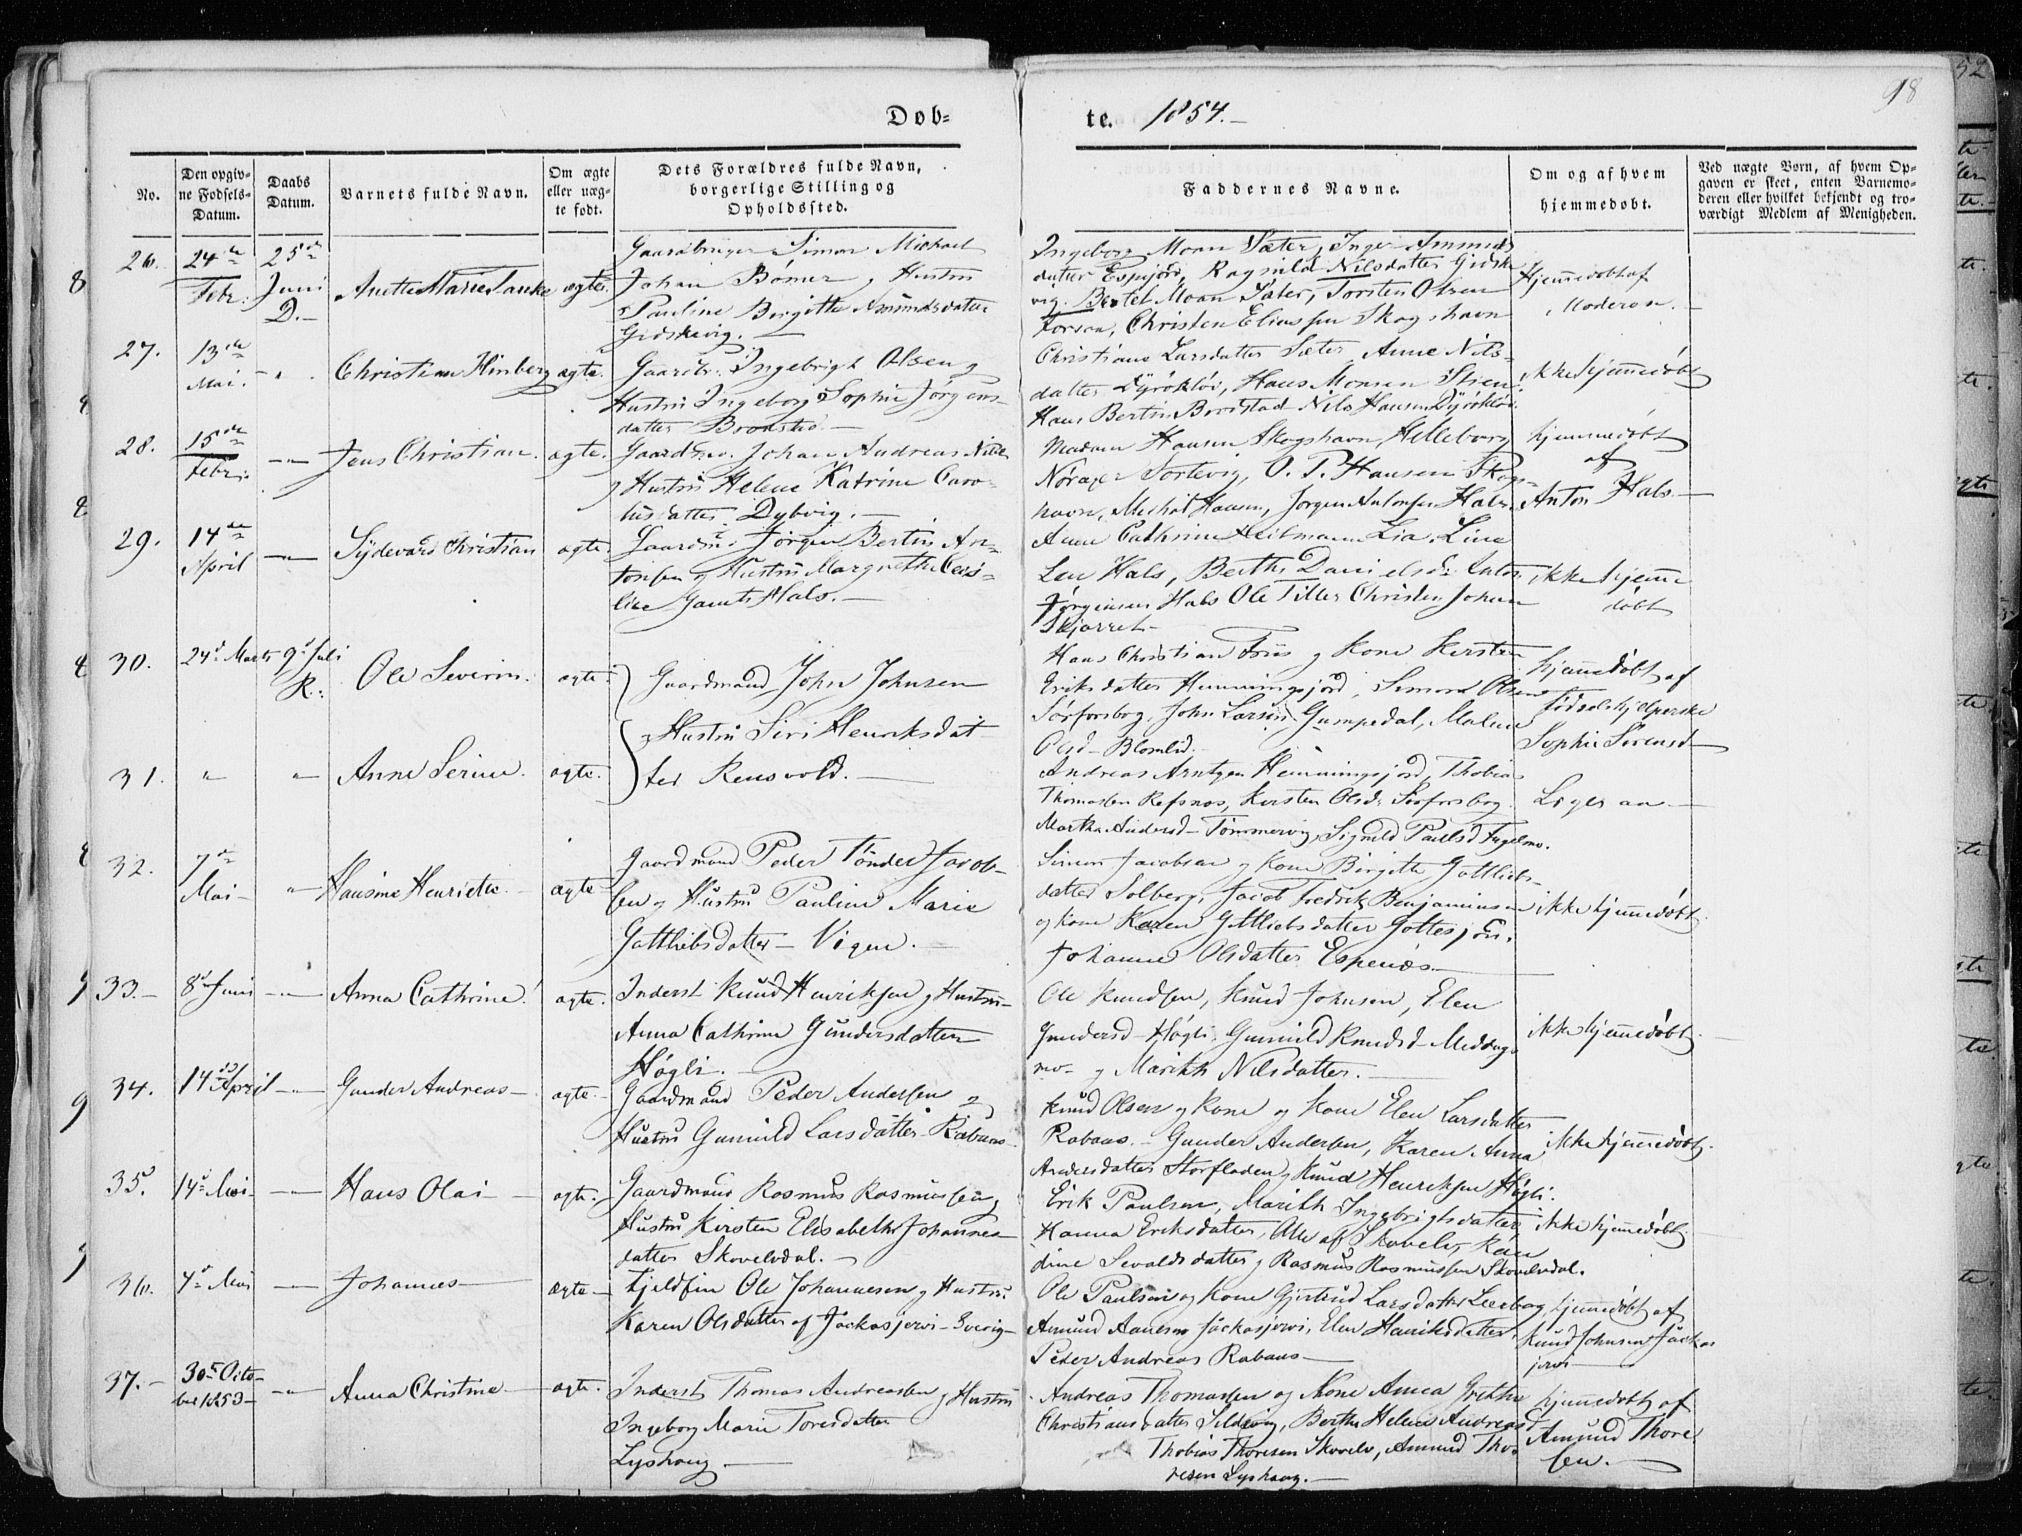 98
52
Døb=
te. 1854.-
No.
Den opgiv=
ne Fødsels=
Datum.
Daabs
Datum.
Barnets fulde Navn.
Om ægte
eller uæg=
te født.
Dets Forældres fulde Navn,
borgerlige Stilling og
Opholdssted.
Faddernes Navne.
Om og af hvem
hjemmedøbt.
Ved uægte Børn, af hvem Op=
gaven er skeet, enten Barnemo=
deren eller hvilket bekjendt og tro=
værdigt Medlem af Menigheden.
26. 24de Febr. 25de Juni D.- Anette Marie Tauke ægte.
Gaardbruger Simon Michael
Johan Bømer, Hustru
Pauline Birgitte Amundsdatter
Gidskevig.-
Ingeborg Moan Sæter, Inger Amunds
datter Espejord, Ragnild Nilsdatter Gidske
vig. Bertel Moan Sæter, Torsten Olsen
Forsaa, Christen Eliassen Skogshavn
Hjemmedøbt af
Moderen.-
27. 13de Mai. " Christian Hinberg ægte.
Gaardbr. Ingebrigt Olsen og
Hustru Ingeborg Sophie Jørgens-
datter
Christiane Larsdatter Sæter, Anne Nils-
datter Dyrøkløv, Hans Monsen Stien
Hans Bertin Nils Hansen Dyrøkløv.
ikke hjemmedøbt
28. 15de Febr. -"- Jens Christian. ægte.
Gaardm. Johan Andreas
og Hustru Helene Katrine Caro-
lusdatter Dybvig.-
Madam Hansen Skogshavn, Helleborg
Sortevig, O. P. Hansen Skogs-
havn, Michal Hansen, Jørgen Antonsen Hals
hjemmedøbt
af
Anton Hals-
29. 14de April -"- Sydevard Christian ægte.
Gaardm. Jørgen Bertin An-
tonsen og Hustru Margrethe
line Hals.-
Anne Cathrine Heitmann Lia, Line
Hals, Berthe Danielsd. Anton
Jørgensen Hals Ole Tiller Christen Johan
ikke hjemme
døbt
30. 24d Marts 9d Juli R.: Ole Severin. ægte.
Gaardmand John Johnsen
Hans Christian Friis og Kone Kirsten
Eriksdatter Hemmingsjord, Simon Olsen
Sørforsbog. John Larsen Gumpedal, Malene
Olsd- Blomlid.-
hjemmedøbt af
Fødselshjelperske
Sophie Sørensd-
31. " " Anne Serine. ægte.
og Hustru Siri Henriksdat
ter Rensvold.-
Andreas Arntzen Hemmingsjord, Thobias
Thomassen Refsnæs, Kirsten Olsd. Sørforsbog
Martha Andersd- Tømmervig, Signild Paulsd Fugelmo.
Ligesaa-
32. 7de Mai- " Hansine Henriette. ægte
Gaardmand Peder Tønder Jacob-
sen og Hustru Pauline Marie
Gottliebsdatter- Vigen.-
Simon Jacobsen og Kone Birgitte Gottliebs-
datter Solberg, Jacob Fredrik Benjaminsen
og Kone Karen Gottliebsdatter Gottesjord.
Johanne Olsdatter Espenæs-
ikke hjemmedøbt.
33.- 8d Juni -"- Anna Cathrine. ægte.
Inderst Knud Henriksen og Hustru-
Anna Cathrine Gundersdatter
Høgli.-
Ole Knudsen, Knud Johnsen, Elen
Gundersd- Høgli. Gunnild Knudsd- Moddags
mo- og Marith Nilsdatter.-
ikke hjemmedøbt.
34. 14d April -"- Gunder Andreas- ægte.-
Gaardmand Peder Andersen og
Hustru Gunnild Larsdatter- Rabaas.
Knud Olsen og Kone og Kone Elen Larsdatter
Rabaas.- Gunder Andersen, Karen Anna
Andersdatter Storfladen, Knud Henriksen Høgli.
ikke hjemmedøbt.
35. 14d Mai- -"- Hans Olai- ægte.
Gaardmand Rasmus Rasmussen og
Hustru Kirsten Elisabeth Johannes
datter Skovelvdal.-
Erik Paulsen, Marith Ingebrigtsdatter,
Hanna Eriksdatter, Alle af Skovelv, Karn
dine Sevaldsdatter og Rasmus Rasmussen Skovelvdal.
ikke hjemmedøbt.
36. 4d Mai -"- Johannes- ægte-
Fjeldfin Ole Johannesen og Hustru
Karen Olsdatter af Jockasjervi- Sverig-
Ole Paulsen og Kone Gjertrud Larsdatter Leerbog
Amund Jockasjervi, Elen Henriksdatter
Peder Andreas Rabaas-
hjemmedøbt af
Knud Johnsen Jockas
jervi-
37.- 30d Octo-
ber 1853- -"- Anna Christine- ægte.
Inderst Thomas Andreassen og Hustru
Ingeborg Marie Toresdatter
Lyshaug.-
Andreas Thomassen og Kone Anna Grethe
Christiansdatter Sildvig, Berthe Helene Andreasd
Thobias Thoresen Skovelv, Amund Tho-
resen Lyshaug.-
hjemmedøbt af
Amund Thore
sen.-